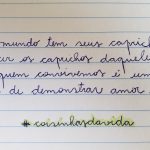 mundo tem seus caprich
er os caprichos daquele
quem convivemos é um
de demonstrar amor
#coisinhasdavida